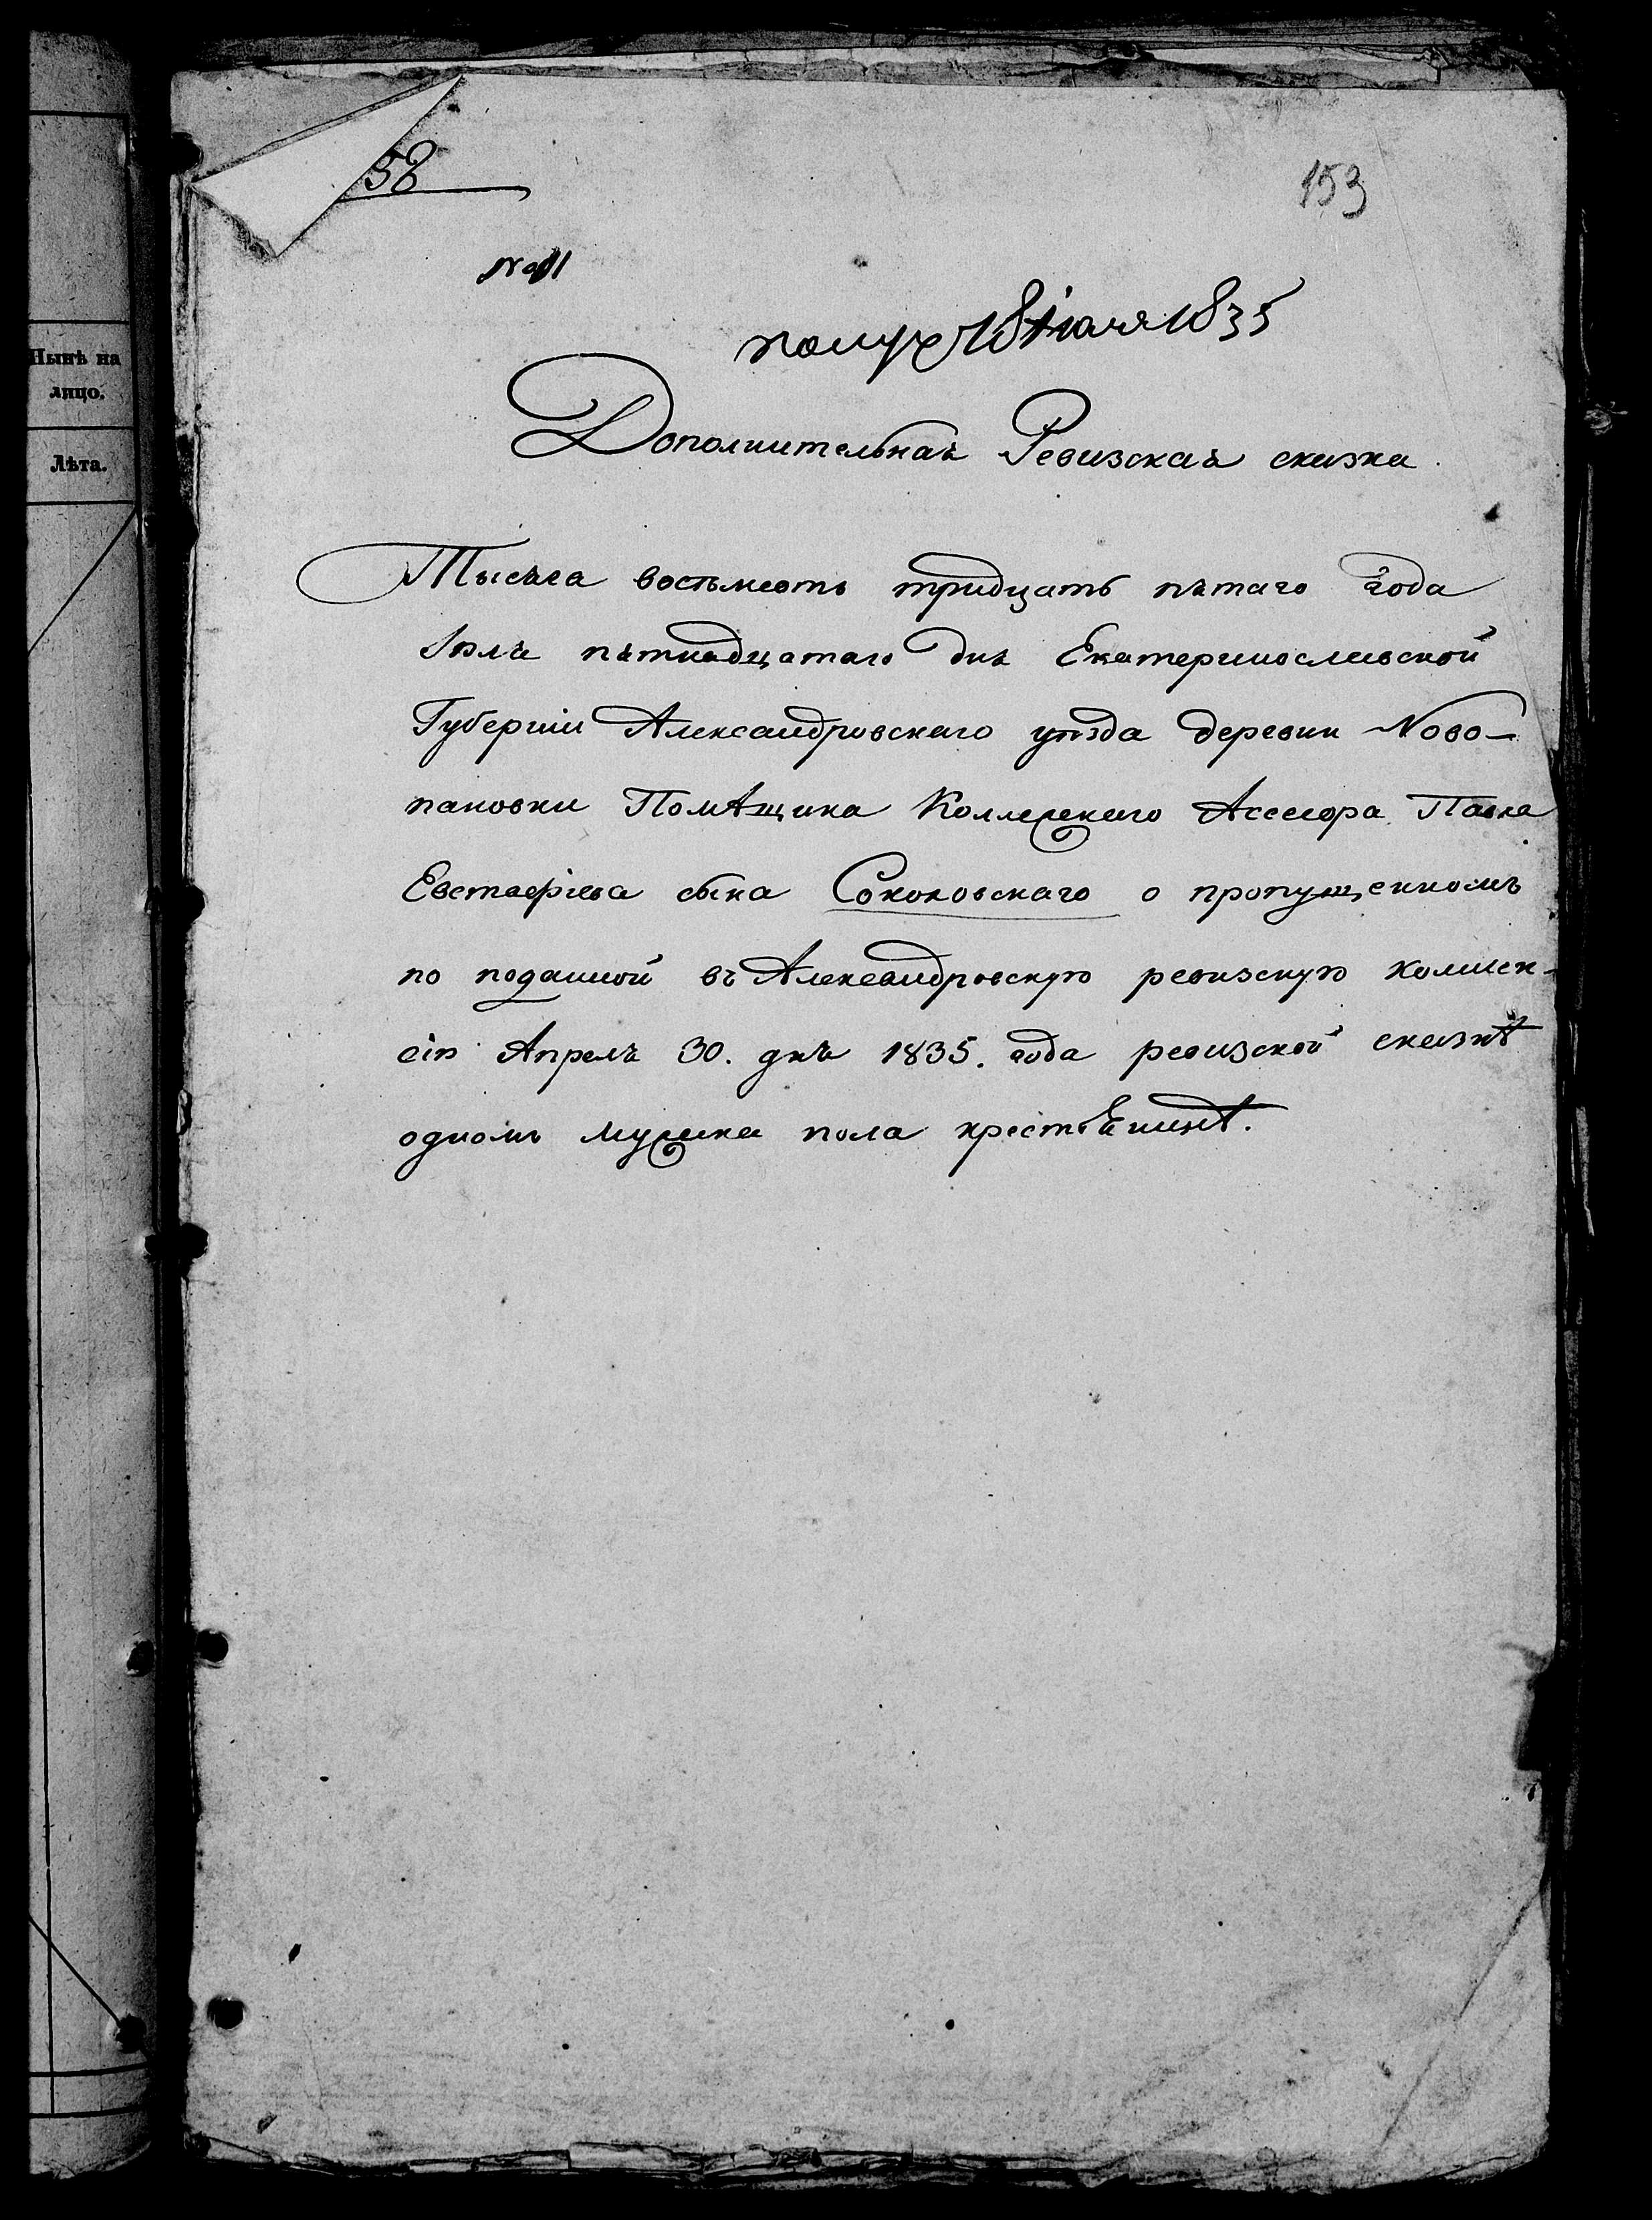 Нынѣ на
лицо.
Лѣта.
58
153
№ 11
получ 18 Іюля 1835
Дополнительная Ревизская сказка.
Тысяча восьмсотъ тридцать пятаго года
Іюля пятнадцатаго дня Екатеринославской
Губерніи Александровскаго уѣзда деревни Ново-
пановки Помѣщика Коллежскаго Ассесора Павла
Евстафіева сына Соколовскаго о пропущенномъ
по поданной въ Александровскую ревизскую комисс-
сію Апреля 30. дня 1835. года ревизской сказкѣ
одномъ мужска пола крестьянинѣ.